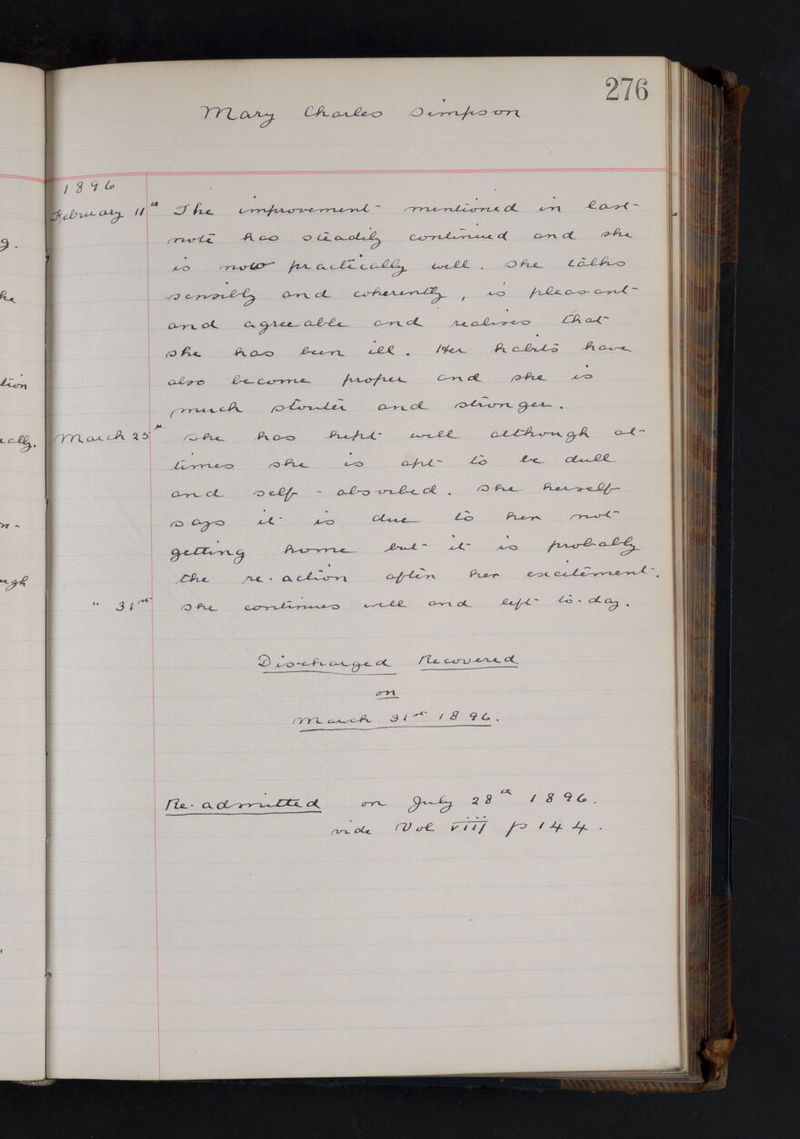 276
Mary Charles Simpson
1896
February 11th The improvement mentioned in last
note has steadily continued and she
is now practically well. She talks
sensibly and coherently, is pleasant
and agreeable and realises that
she has been ill. Her habits have
also become proper and she is
much stouter and stronger.
March 25th She has kept well although at
times she is apt to be dull
and self-absorbed. She herself
says it is due to her not
getting home but it is probably
the re-action after her excitement.
" 31st She continues well and left to-day.
Discharged Recovered
on
March 31st 1896.
Re-admitted on July 28th 1896.
vide Vol VIII p 144.